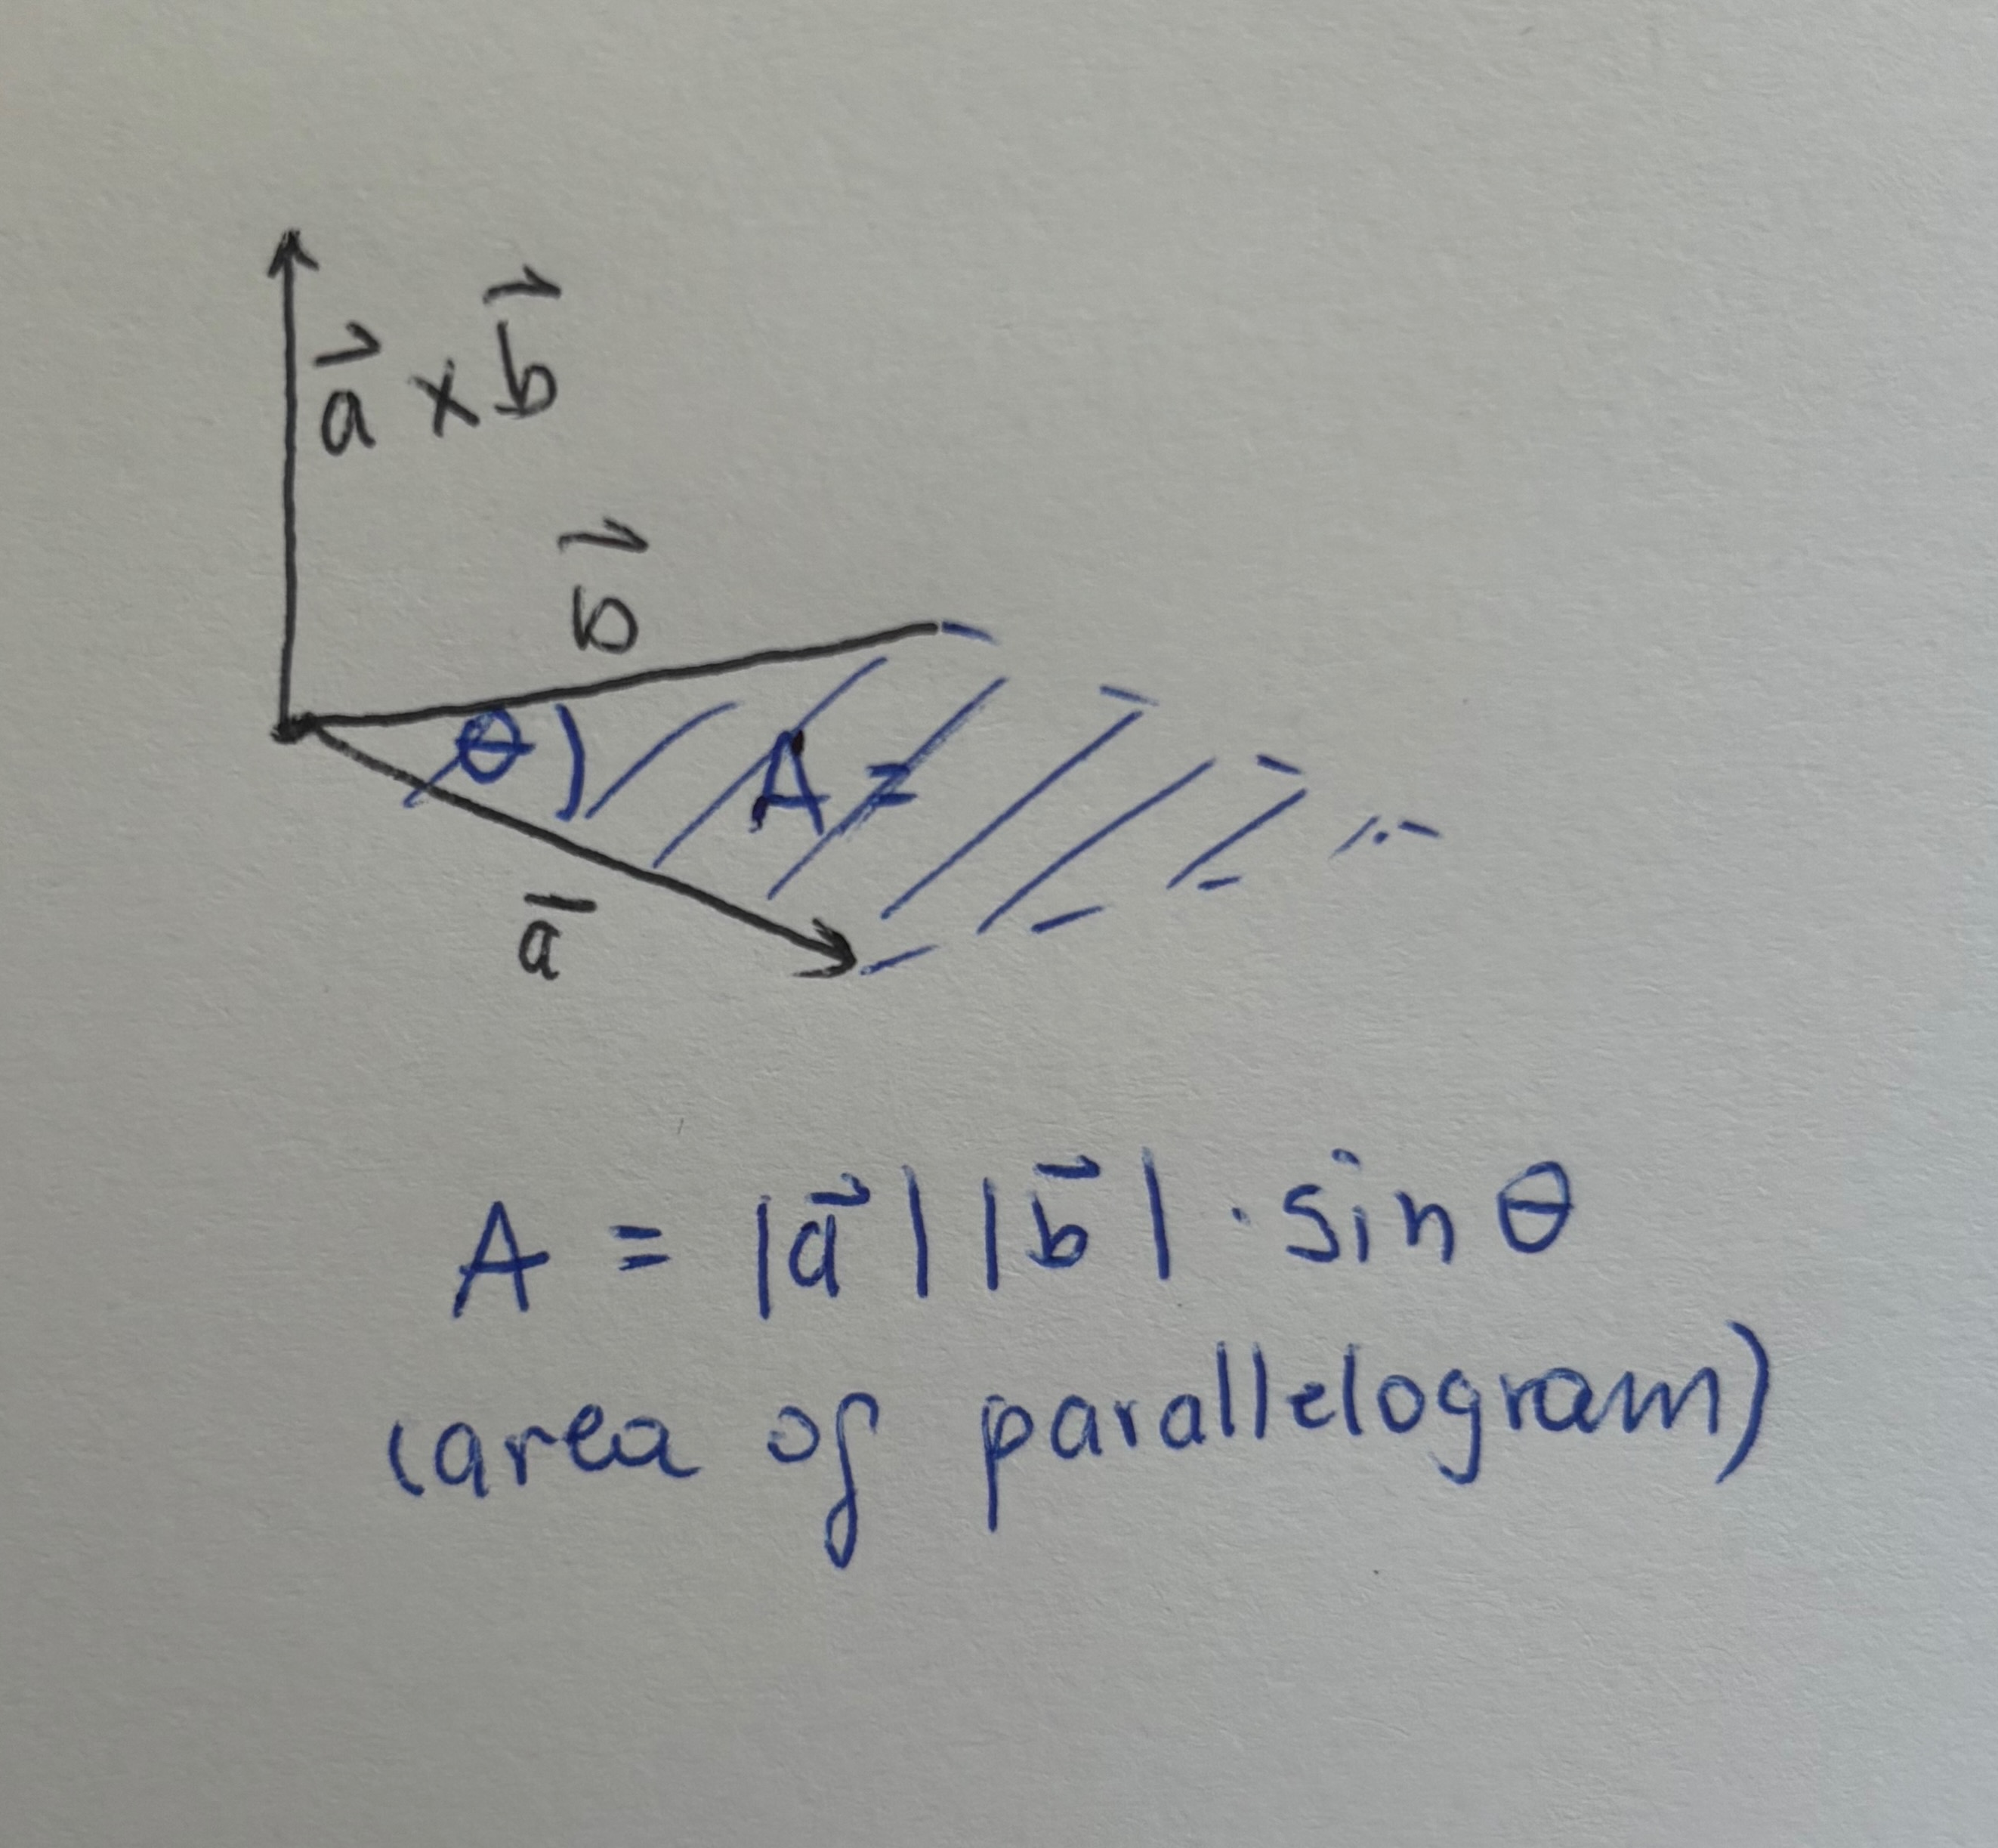 a⃗ × b⃗
b⃗
θ
A =
a̅
A = |a⃗| |b⃗| · sin θ
(area of parallelogram)